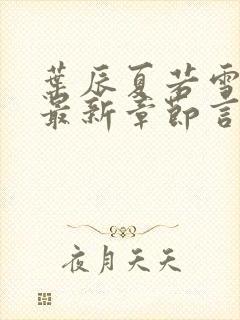 葉辰夏若雪
最新章節言
夜月天天